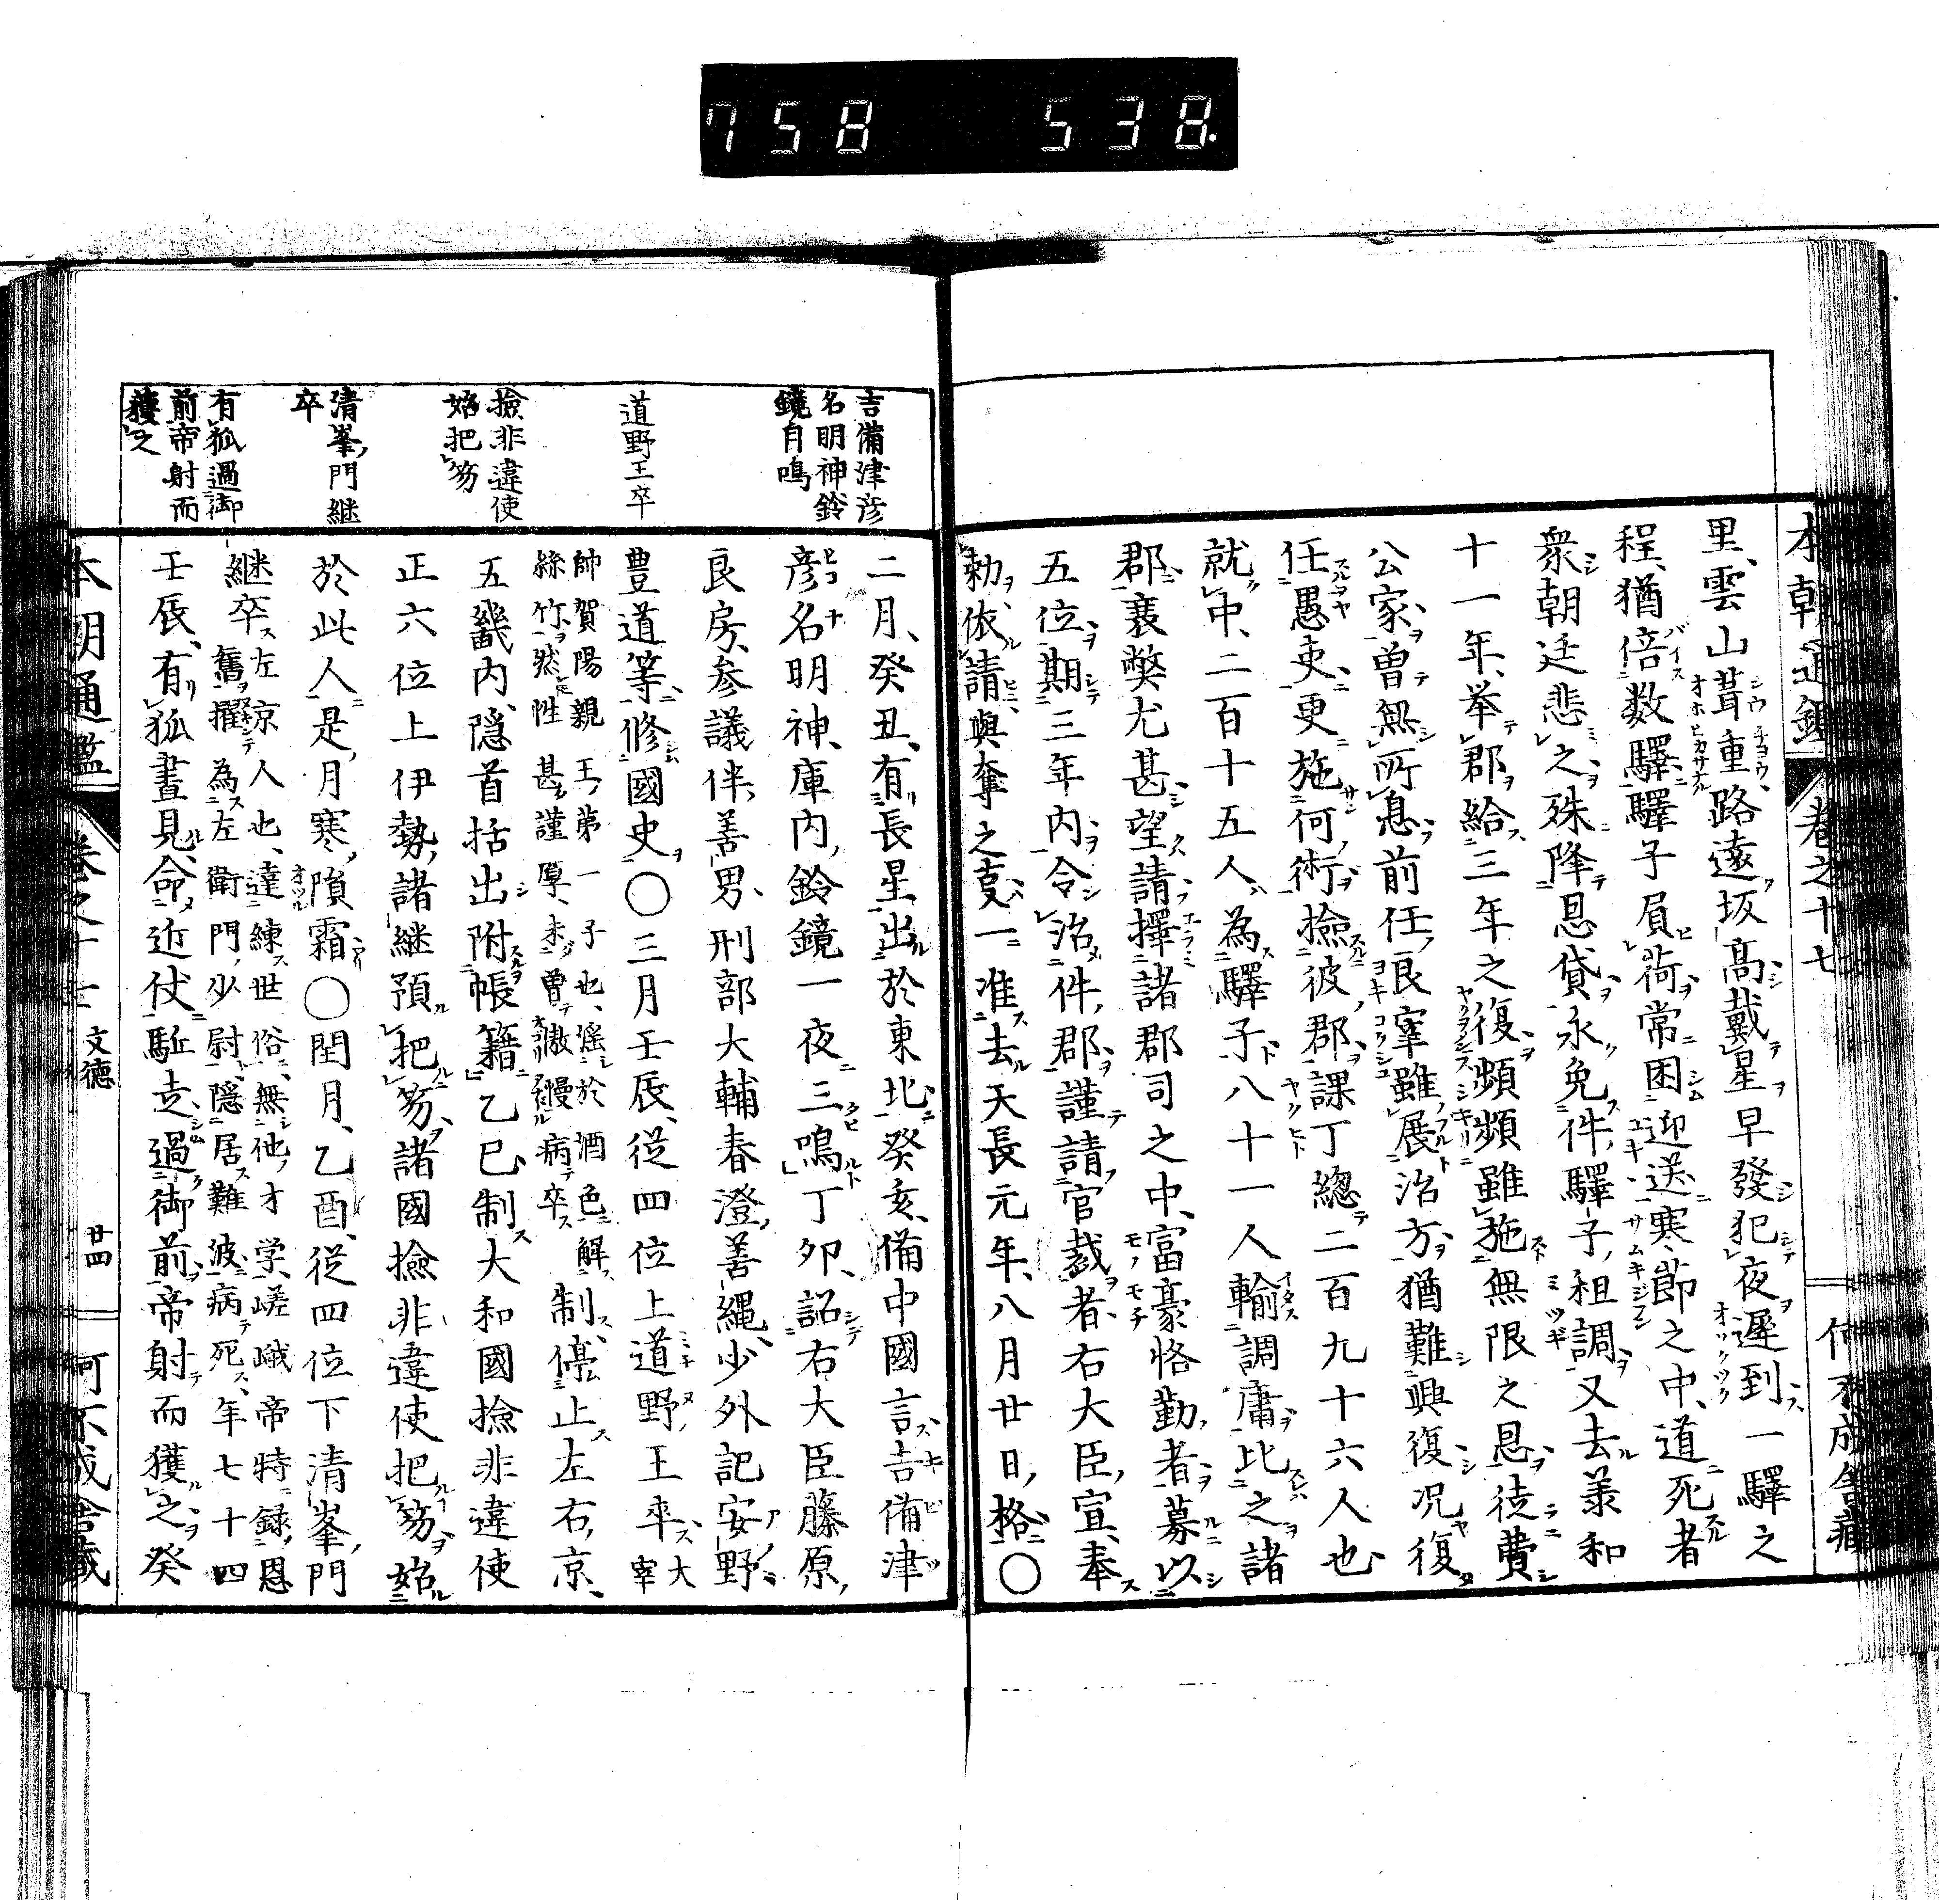 758 538
本朝通鑑 卷之十七
里、雲山葺重、路遠坂高、戴星早發、犯夜遲到、一驛之
程、猶倍数驛、驛子肩荷常困迎送、寒節之中、道死者
衆、朝廷悲之、殊降恩貸、永免件驛子租調、又去義和
十一年、举郡給三年之復、頻頻雖施無限之恩、徒費
公家、曽無所息、前任良宰雖展治方、猶難興復、况復
任愚吏、更施何術、撿彼郡課丁、緫二百九十六人也、
就中、二百十五人、為驛子、八十一人輸調庸、比之諸
郡、衰弊尤甚、望請擇諸郡司之中、富豪恪勤者、募以
五位、期三年内、令治件郡、謹請官裁者、右大臣宣、奉
勅依請、與奪之事、一准去天長元年、八月廿日格、○
吉備津彦
名明神鈴
鏡自鳴
道野王卒
撿非違使
始把笏
清峯門継
卒
有狐過御
前帝射而
獲之
二月、癸丑、有長星、出於東北、癸亥、備中國言、吉備津
彦名明神、庫内鈴鏡一夜三鳴、丁夘、詔右大臣藤原
良房、参議伴善男、刑部大輔春澄善縄、少外記安野
豊道等、修國史○三月壬辰、從四位上道野王卒、大宰
帥賀陽親王第一子也、滛於酒色、解
絲竹、然性甚謹厚、未曽慠慢、病卒、制停止左右京、
五畿内、隠首括出附帳籍、乙巳、制大和國撿非違使
正六位上伊勢諸継預把笏、諸國撿非違使把笏始
於此人、是月寒、隕霜○閏月、乙酉、從四位下清峯門
継卒、左京人也、達練世俗、無他才学、嵯峨帝特錄恩
舊、擢為左衛門少尉、隠居難波、病死、年七十四
壬辰、有狐晝見、命近仗駈走、過御前、帝射而獲之、癸
本朝通鑑 卷之十七 文德 廿四 何不成舎藏